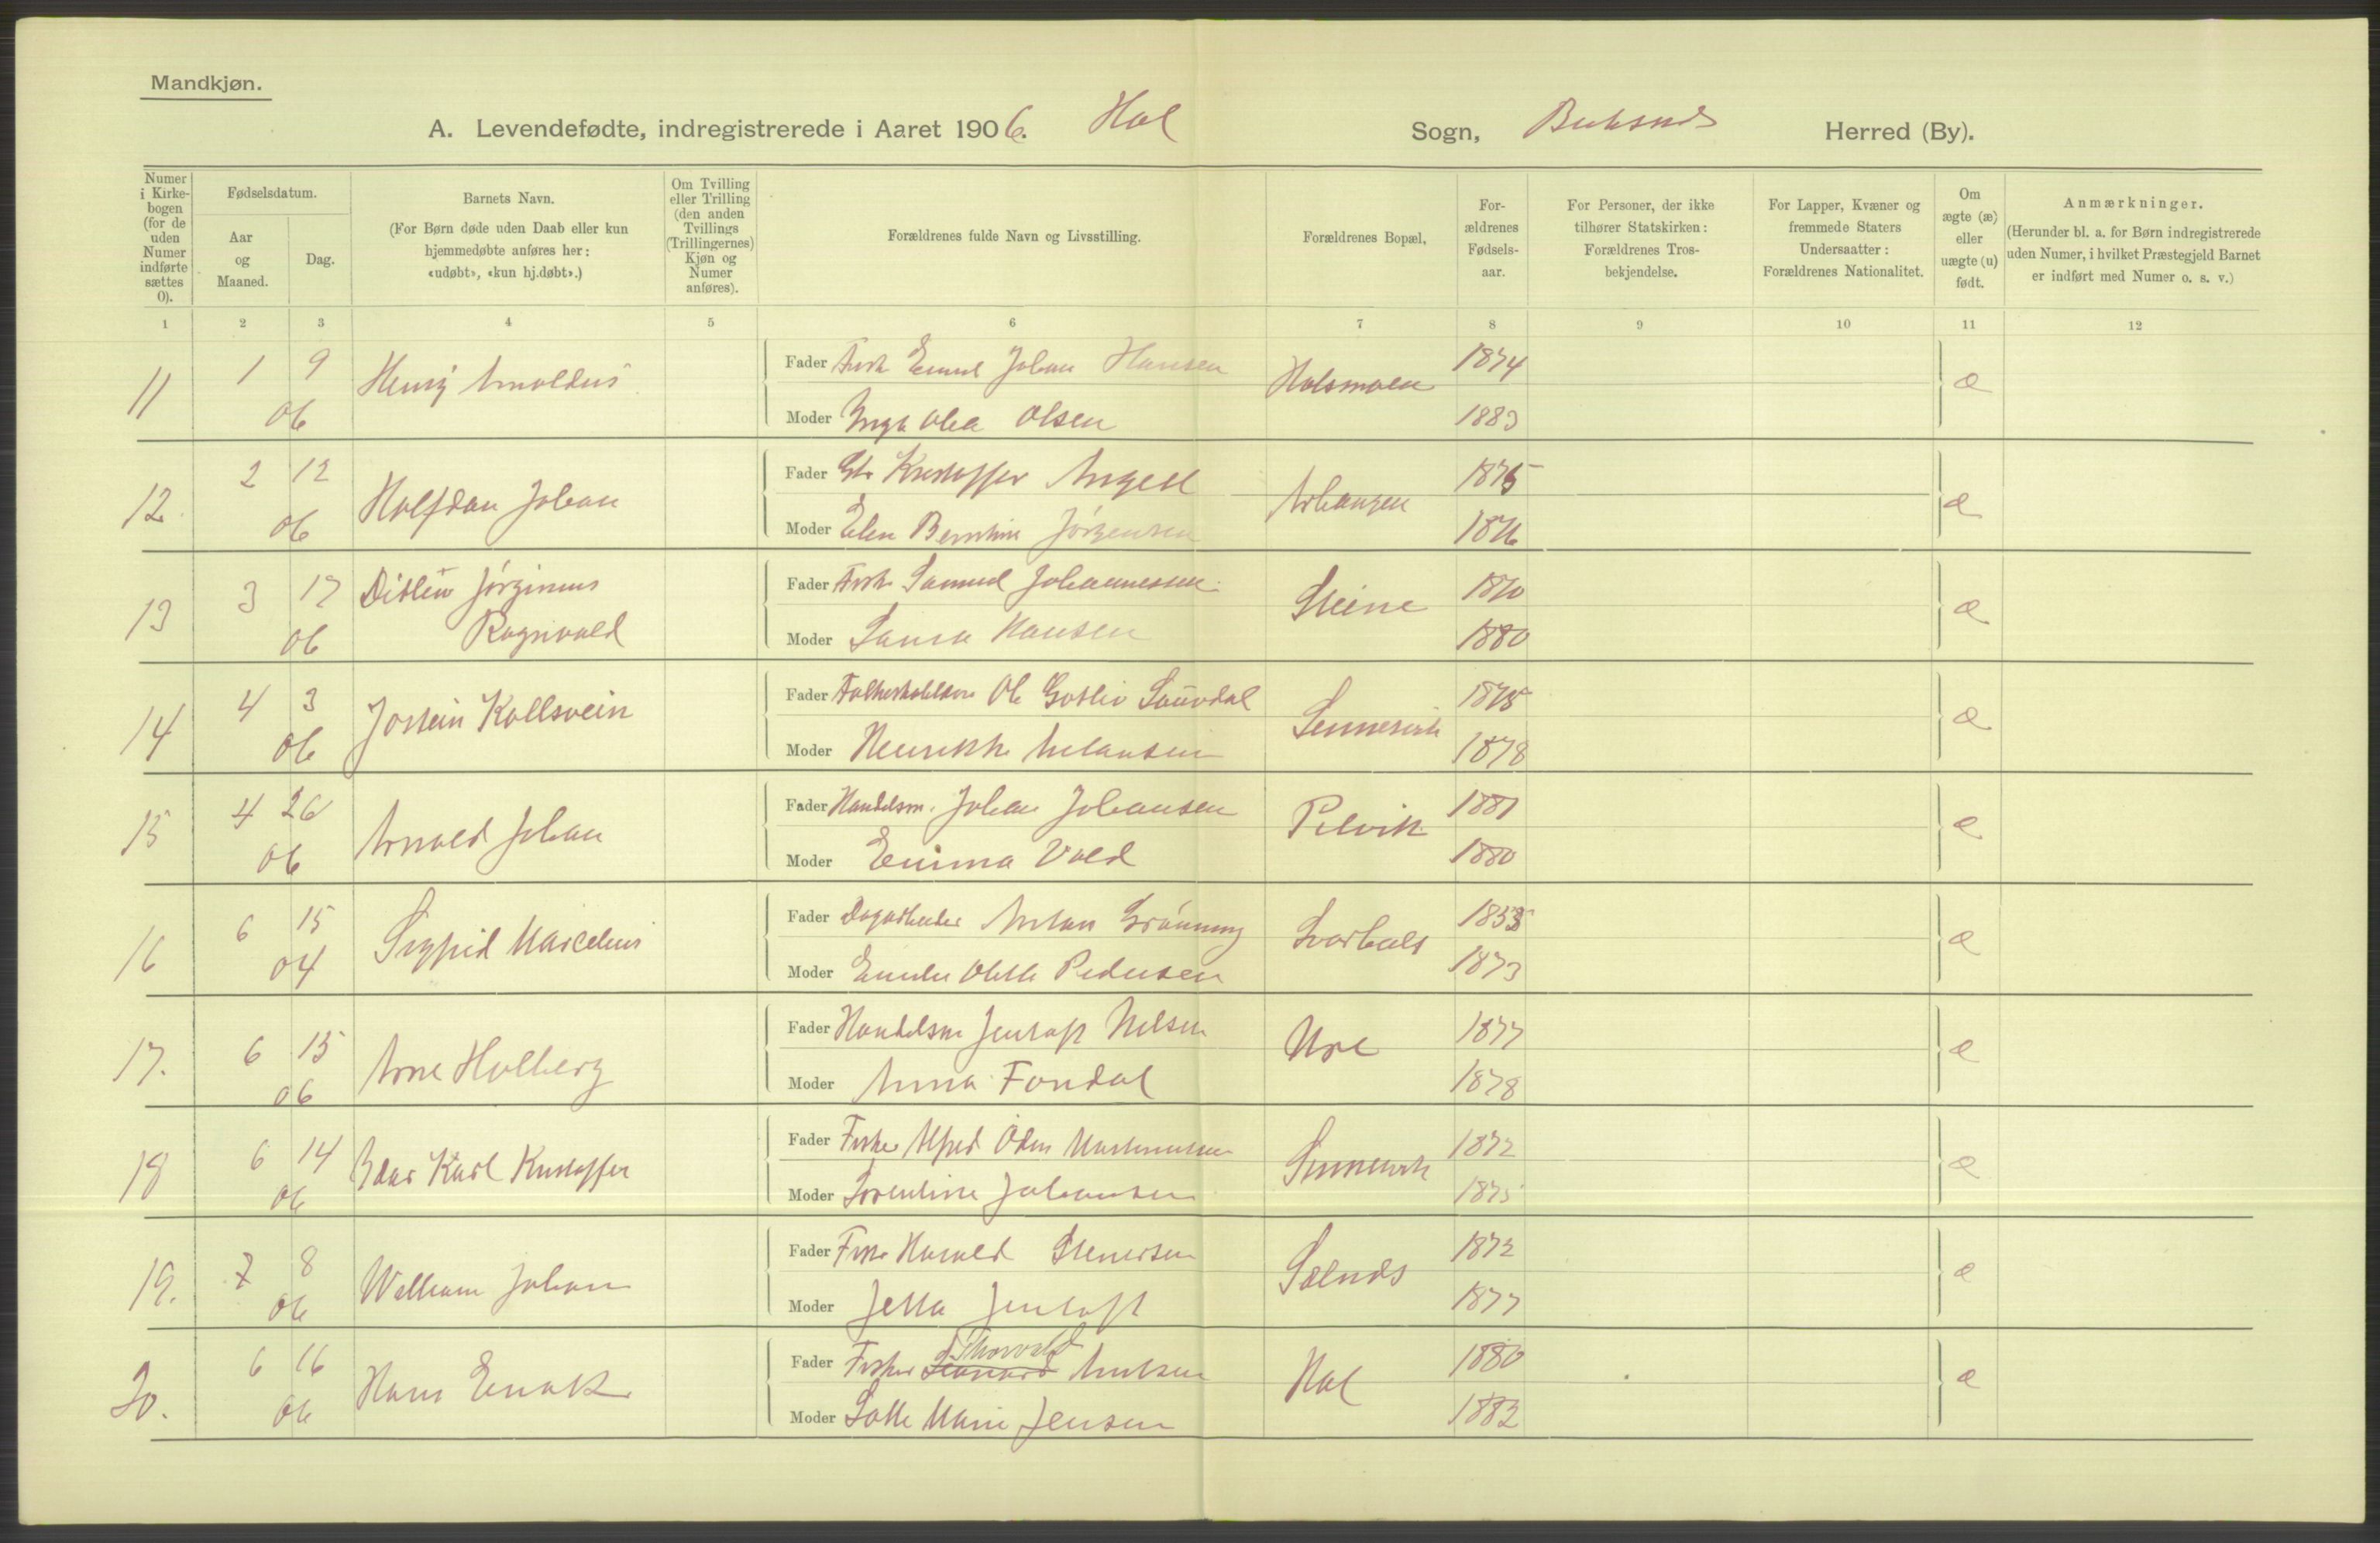 Mandkjøn.
A. Levendefødte, indregistrerede i Aaret 1906. Hol Sogn, Buksnes Herred (By).
Numer i Kirke-bogen (for de uden Numer indførte sættes 0).
Fødselsdatum.
Aar og Maaned.
Dag.
Barnets Navn.
(For Børn døde uden Daab eller kun hjemmedøbte anføres her: «udøbt», «kun hj.døbt».)
Om Tvilling eller Trilling (den anden Tvillings (Trillingernes) Kjøn og Numer anføres).
Forældrenes fulde Navn og Livsstilling.
Forældrenes Bopæl,
For-ældrenes Fødsels-aar.
For Personer, der ikke tilhører Statskirken: Forældrenes Tros-bekjendelse.
For Lapper, Kvæner og fremmede Staters Undersaatter: Forældrenes Nationalitet.
Om ægte (æ) eller uægte (u) født.
Anmærkninger.
(Herunder bl. a. for Børn indregistrerede uden Numer, i hvilket Præstegjeld Barnet er indført med Numer o. s. v.)
1 2 3 4 5 6 7 8 9 10 11 12
11 1 9 06 Henrij Arnoldus
Fader Fisk Emil Johan Hansen Holsmoen 1874 æ
Moder Inga Olea Olsen 1883
12. 2 12 06 Halfdan Johan
Fader Gb. Kristoffer Angell 1875 æ
Moder Elen Berntine Jörgensen 1876
13 3 17 06 Ditlew Jörginus Ragnvald
Fader Fisk. Samuel Johannessen Steine 1870 æ
Moder Laura Hansen 1880
14 4 3 06 Jostein Kollsvein
Fader Ole Gotliv Saurdal Sennesvik 1875 æ
Moder Henrikke 1878
15 4 26 06 Arnold Johan
Fader Handelsm. Johan Johansen Pilvik 1881 æ
Moder Emma Vold 1880
16 6 15 04 Sigfrid Marcelius
Fader Dagarbeider Anton Grönning Svarholt 185 æ
Moder Olette Pedersen 1873
17. 6 15 06 Arne Holberg
Fader Handelsm Jentoft Nilsen Ure 1877 æ
Moder Anna Fondal 1878
18 6 14 06 Karl Kristoffer
Fader Fisker Alfred Odin Martinussen Sennesvik 1872 æ
Moder Sorentine Johansen 1875
19. 7 8 06 William Johan
Fader Fisk. Harald Stenersen 1872 æ
Moder Jetta Jentoft 1877
20. 6 16 06 Hans Enok
Thorvald
Fader Fisker Leonard Hol 1880 æ
Moder Lotte Marie Jensen 1882